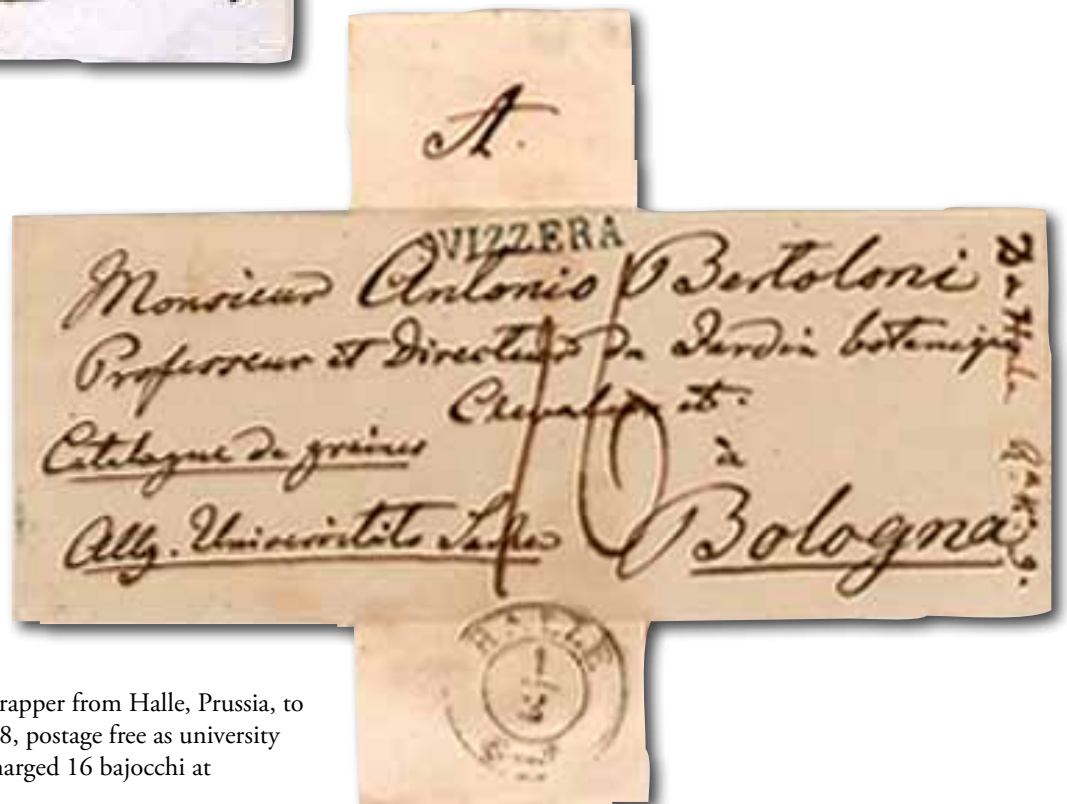 A.
VIZZERA
Monsieur Antonio Bertoloni
Professeur et Directeur du Jardin botanique
Chevalier etc.
Catalogue de graines
à
Allg. Universitäts Sache
Bologna
16
HALLE
rapper from Halle, Prussia, to
8, postage free as university
harged 16 bajocchi at